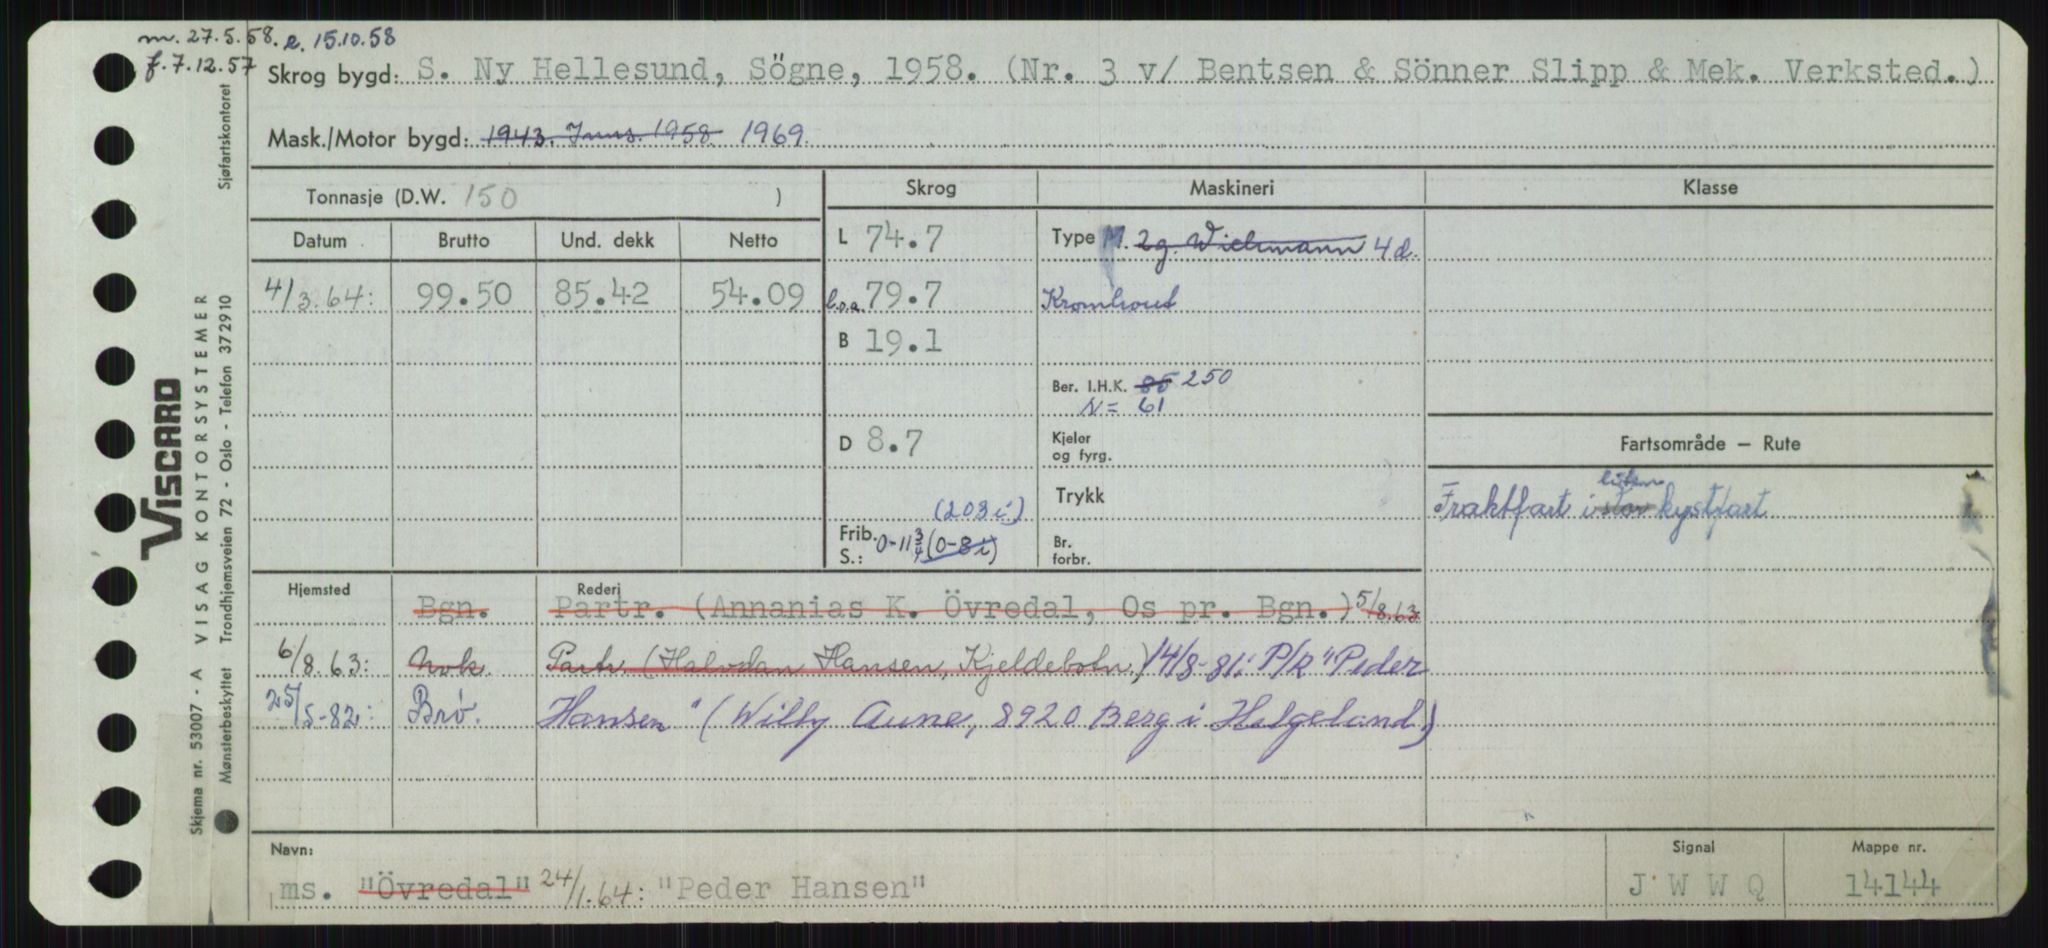 m. 27.5.58. e. 15.10.58
f. 7.12.57
Skrog bygd: S. Ny Hellesund, Sögne, 1958. (Nr. 3 v/ Bentsen & Sönner Slipp & Mek. Verksted.)
Mask./Motor bygd: 1943. Inns. 1958 1969.
Tonnasje (D.W. 150 )
Skrog
Maskineri
Klasse
Datum Brutto Und. dekk Netto
4/3.64: 99.50 85.42 54.09
L 74.7
l.o.a. 79.7
B 19.1
D 8.7
(203 i)
Frib. S.: 0-11 3/4 (0-8 i)
Type M. 2g. Wichmann 4 d.
Kromhout
Ber. I.H.K. 85 250
N = 61
Kjeler
og fyrg.
Trykk
Br.
forbr.
Fartsområde – Rute
liten
Fraktfart i stor kystfart
Hjemsted Rederi
Bgn. Partr. (Annanias K. Övredal, Os pr. Bgn.) 5/8.63
6/8.63: Nvk. Partr. (Halvdan Hansen, Kjeldebotn.) 14/8-81: P/R "Peder
25/5-82: Brø. Hansen" (Willy Aune, 8920 Berg i Helgeland)
Navn:
ms. "Övredal" 24/1.64: "Peder Hansen"
Signal
J W W Q
Mappe nr.
14144
VISCARD
Skjema nr. 53007 - A VISAG KONTORSYSTEMER
Mønsterbeskyttet Trondhjemsveien 72 - Oslo - Telefon 372910
Sjøfartskontoret